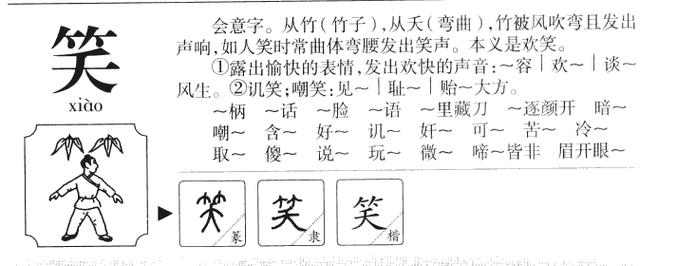 笑
xiào
会意字。从竹(竹子),从夭(弯曲),竹被风吹弯且发出
声响,如人笑时常曲体弯腰发出笑声。本义是欢笑。
①露出愉快的表情,发出欢快的声音:~容│欢~│谈~
风生。②讥笑;嘲笑:见~│耻~│贻~大方。
~柄 ~话 ~脸 ~语 ~里藏刀 ~逐颜开 暗~
嘲~ 含~ 好~ 讥~ 奸~ 可~ 苦~ 冷~
取~ 傻~ 说~ 玩~ 微~ 啼~皆非 眉开眼~
笑 篆 笑 隶 笑 楷